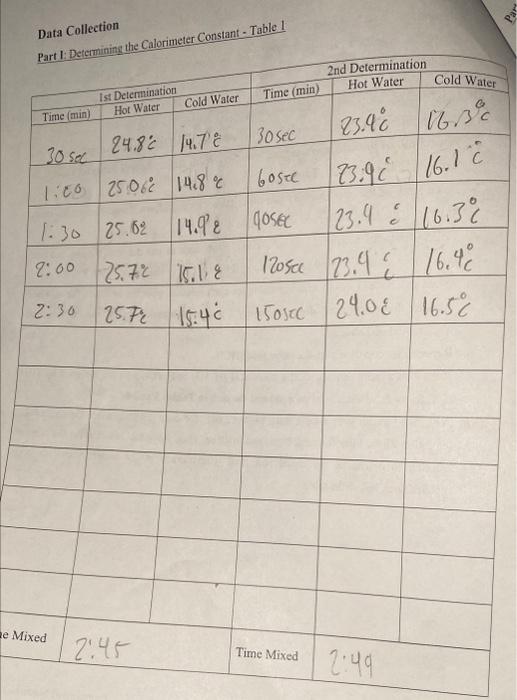 Data Collection
Part I: Determining the Calorimeter Constant - Table 1
1st Determination 2nd Determination
Time (min) Hot Water Cold Water Time (min) Hot Water Cold Water
30 sec 24.8°C 14.7°C 30 sec 23.4°C 16.3°C
1:00 25.06°C 14.8°C 60sec 23.9°C 16.1°C
1:30 25.62 14.9°C 90sec 23.4°C 16.3°C
2:00 25.7°C 15.1°C 120sec 23.9°C 16.4°C
2:30 25.7°C 15.4°C 150sec 24.0°C 16.5°C
Mixed 2:45 Time Mixed 2:49